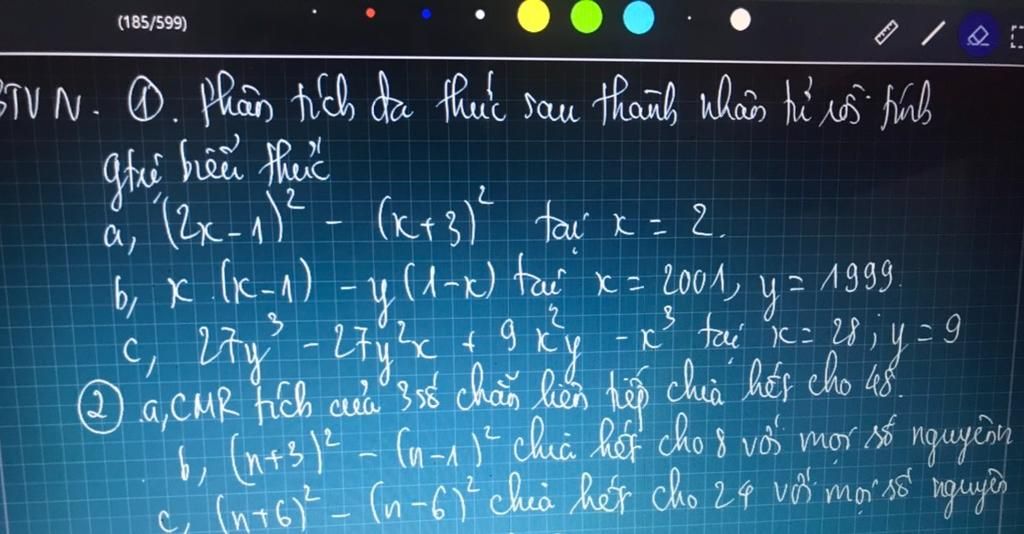 (185/599)
BTVN. ①. Phân tích đa thức sau thành nhân tử rồi tính
gtrị biểu thức
a, (2x-1)² - (x+3)² tại x = 2.
b, x.(x-1) - y(1-x) tại x = 2001, y = 1999.
c, 27y³ - 27y²x + 9x²y - x³ tại x = 28; y = 9
② a, CMR tích của 3 số chẵn liên tiếp chia hết cho 48.
b, (n+3)² - (n-1)² chia hết cho 8 với mọi số nguyên n
c, (n+6)² - (n-6)² chia hết cho 24 với mọi số nguyên